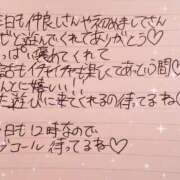 日も仲良しさんやえのぬましてさん
ぜと遊んでくれてありがとう♡
っぱい褒めてくれて
話もイチャイチャも楽しくてあっという間♡
んとに嬉しい!!!
た遊びに来てくれるの待ってるね♡
日も12時なので
ブコール待ってるね♡